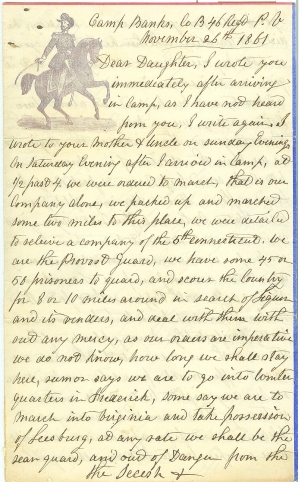 Camp Banks, Co B 46 Regt P. V
November 26th 1861
Dear Daughter, I wrote you
immediately after arriving
in camp, as I have not heard
from you, I write again, I
wrote to your Mother & Uncle on sunday Evening,
On Saturday Evening after I arrivd in camp, at
1/2 past 4 we were ordered to march, that is our
company alone, we packed up and marched
some two miles to this place, we were detailed
to releive a company of the 5th connecticut. we
are the Provost Guard, we have some 45 or
50 prisoners to guard, and scour the country
for 8 or 10 miles around in search of Liquor
and its venders, and deal with them with
out any mercy, as our orders are imperative
we do not know, how long we shall stay
here, rumor says we are to go into winter
quarters in Frederick, some say we are to
march into Virginia and take possession
of Leesburg, at any rate we shall be the
rear guard, and out of Danger from the
the Secesh &